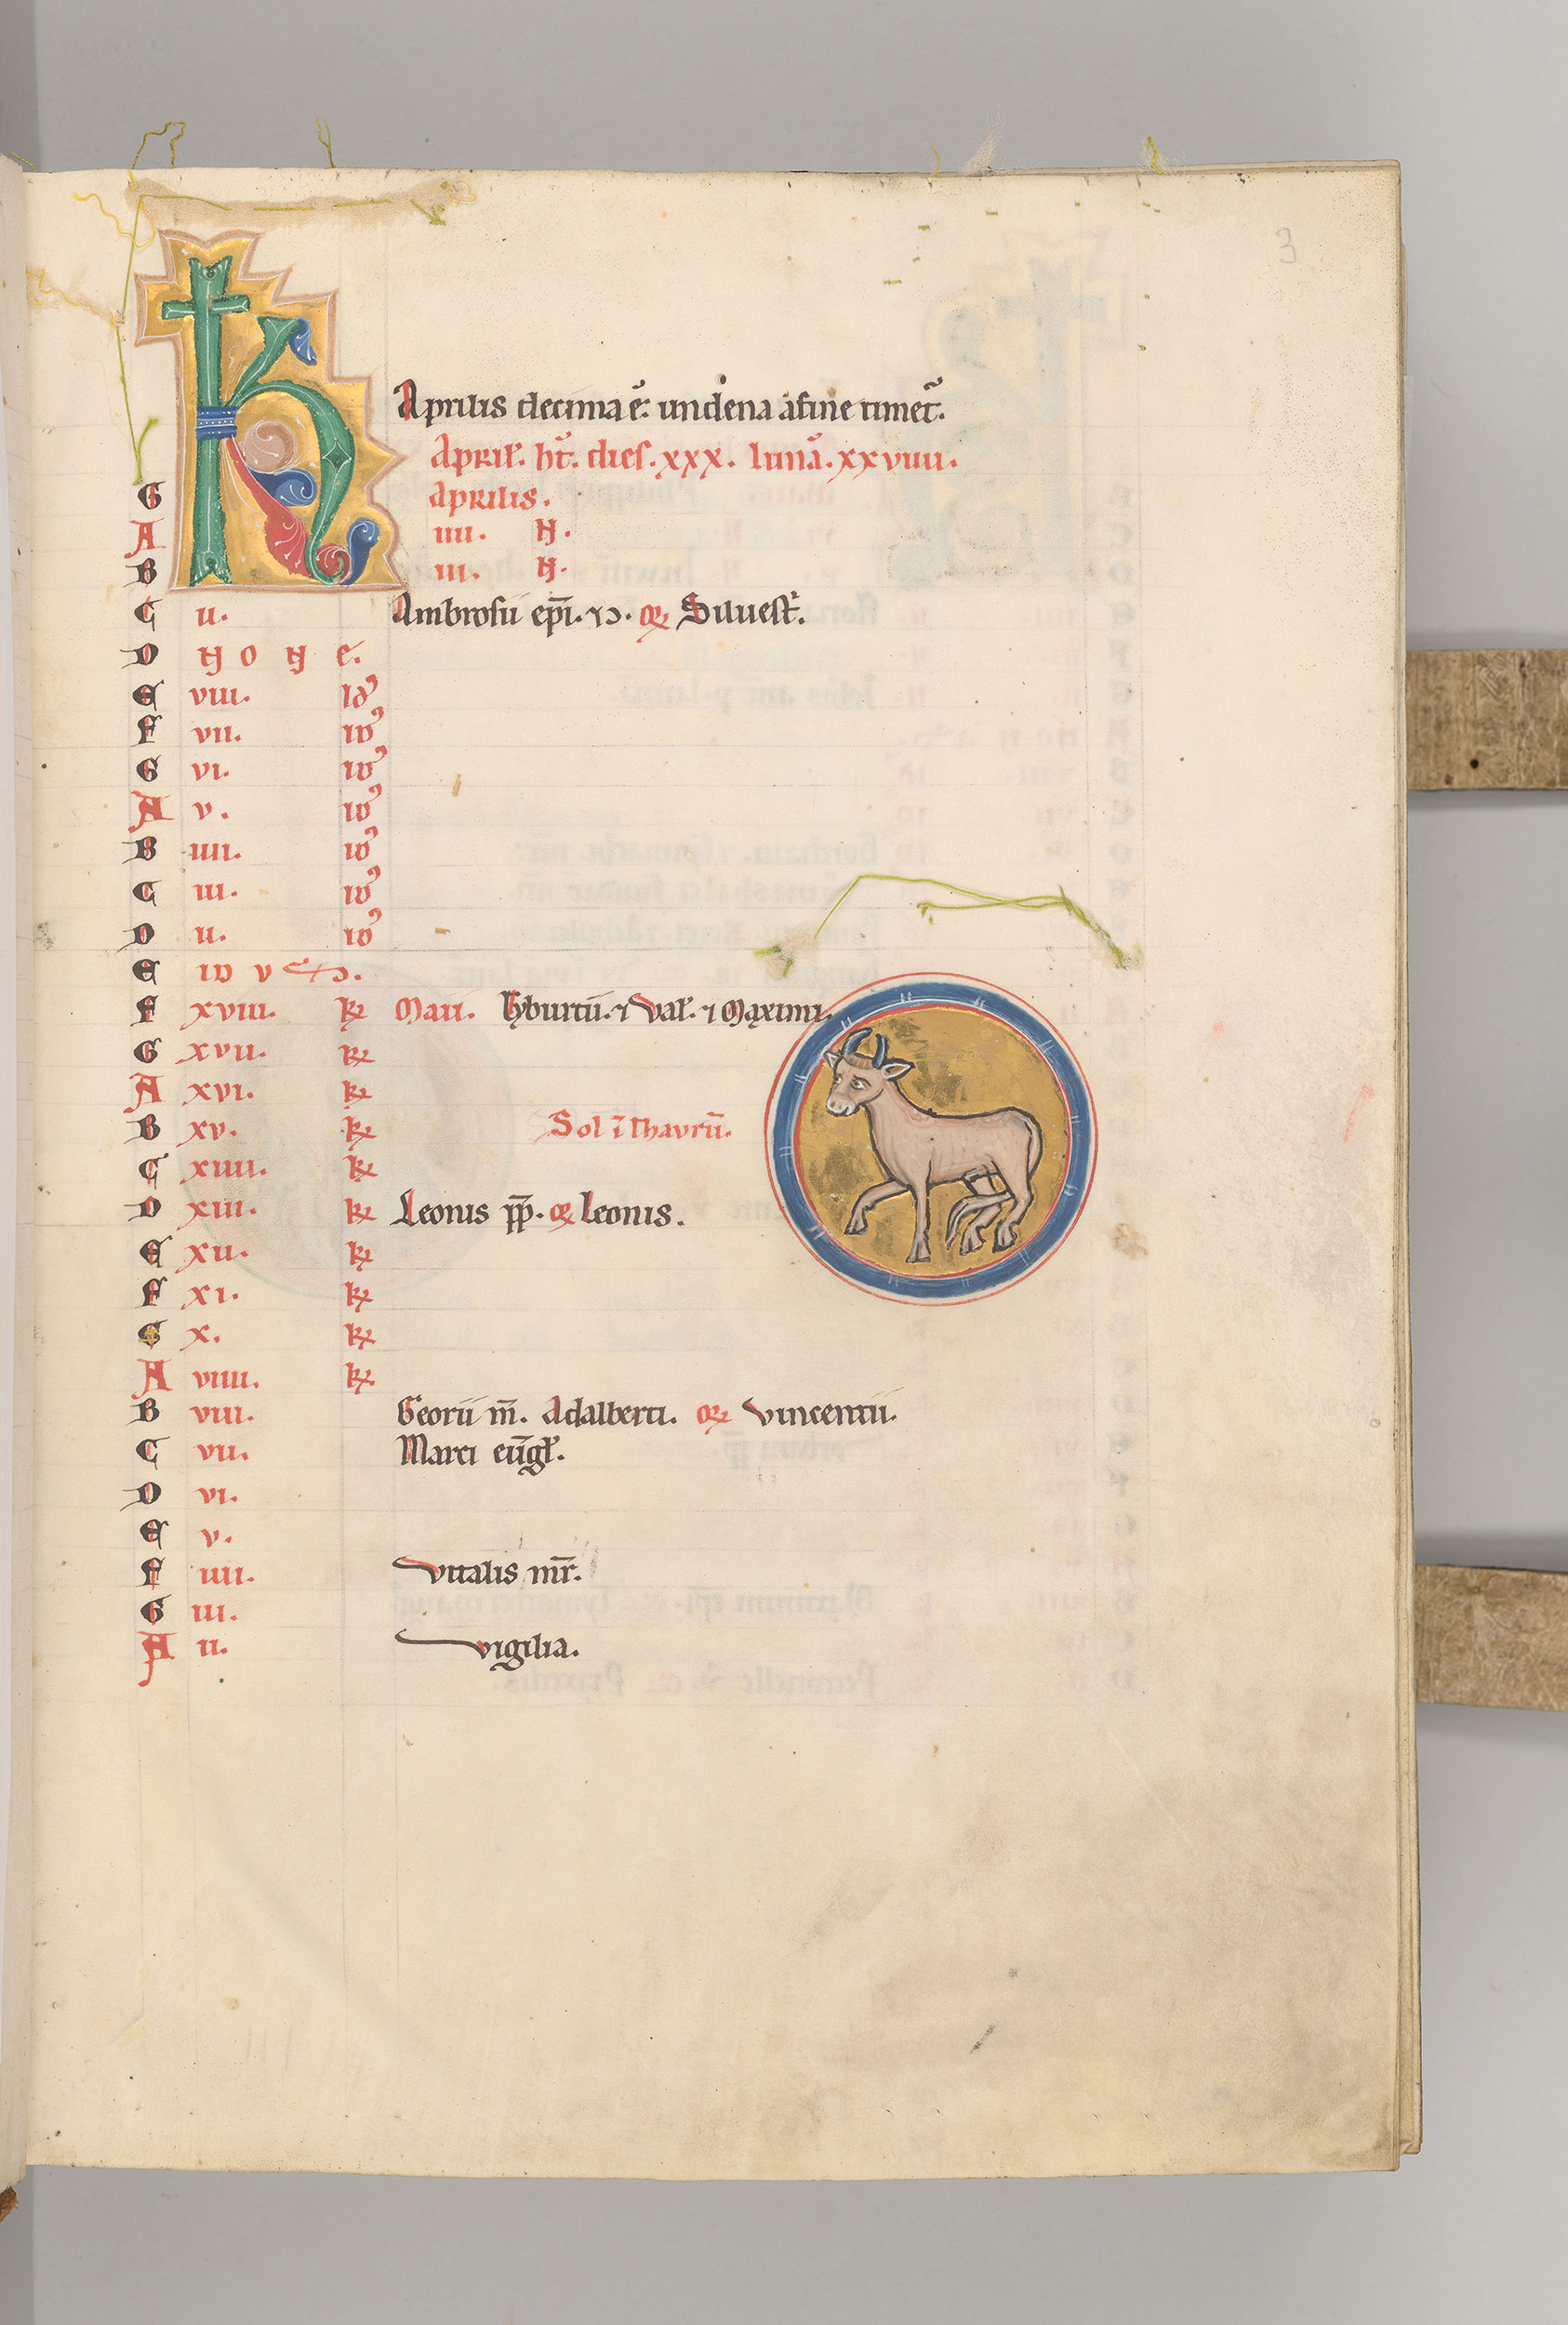 3
KL
Aprilis decima ē. undena a fine timet᷑.
April̄. ht̄. dies. xxx. lunā. xxviiii.
G Aprilis.
A iiii. N.
B iii. N.
C ii. Ambrosii ep̄i. ⁊ ɔ. oꝝ Siluest᷑.
D N O N E.
E viii. Idꝰ
F vii. Idꝰ
G vi. Idꝰ
A v. Idꝰ
B iiii. Idꝰ
C iii. Idꝰ
D ii. Idꝰ
E ID V S.
F xviii. kl Maii. Tyburtii. ⁊ Val̄. ⁊ Maximi.
G xvii. kl
A xvi. kl
B xv. kl Sol ī Thaurū.
C xiiii. kl
D xiii. kl Leonis pp̄. oꝝ Leonis.
E xii. kl
F xi. kl
G x. kl
A viiii. kl
B viii. Georii m̄. Adalberti. oꝝ Vincentii.
C vii. Marci eūgl̄.
D vi.
E v.
F iiii. Vitalis mr̄.
G iii.
A ii. Vigilia.